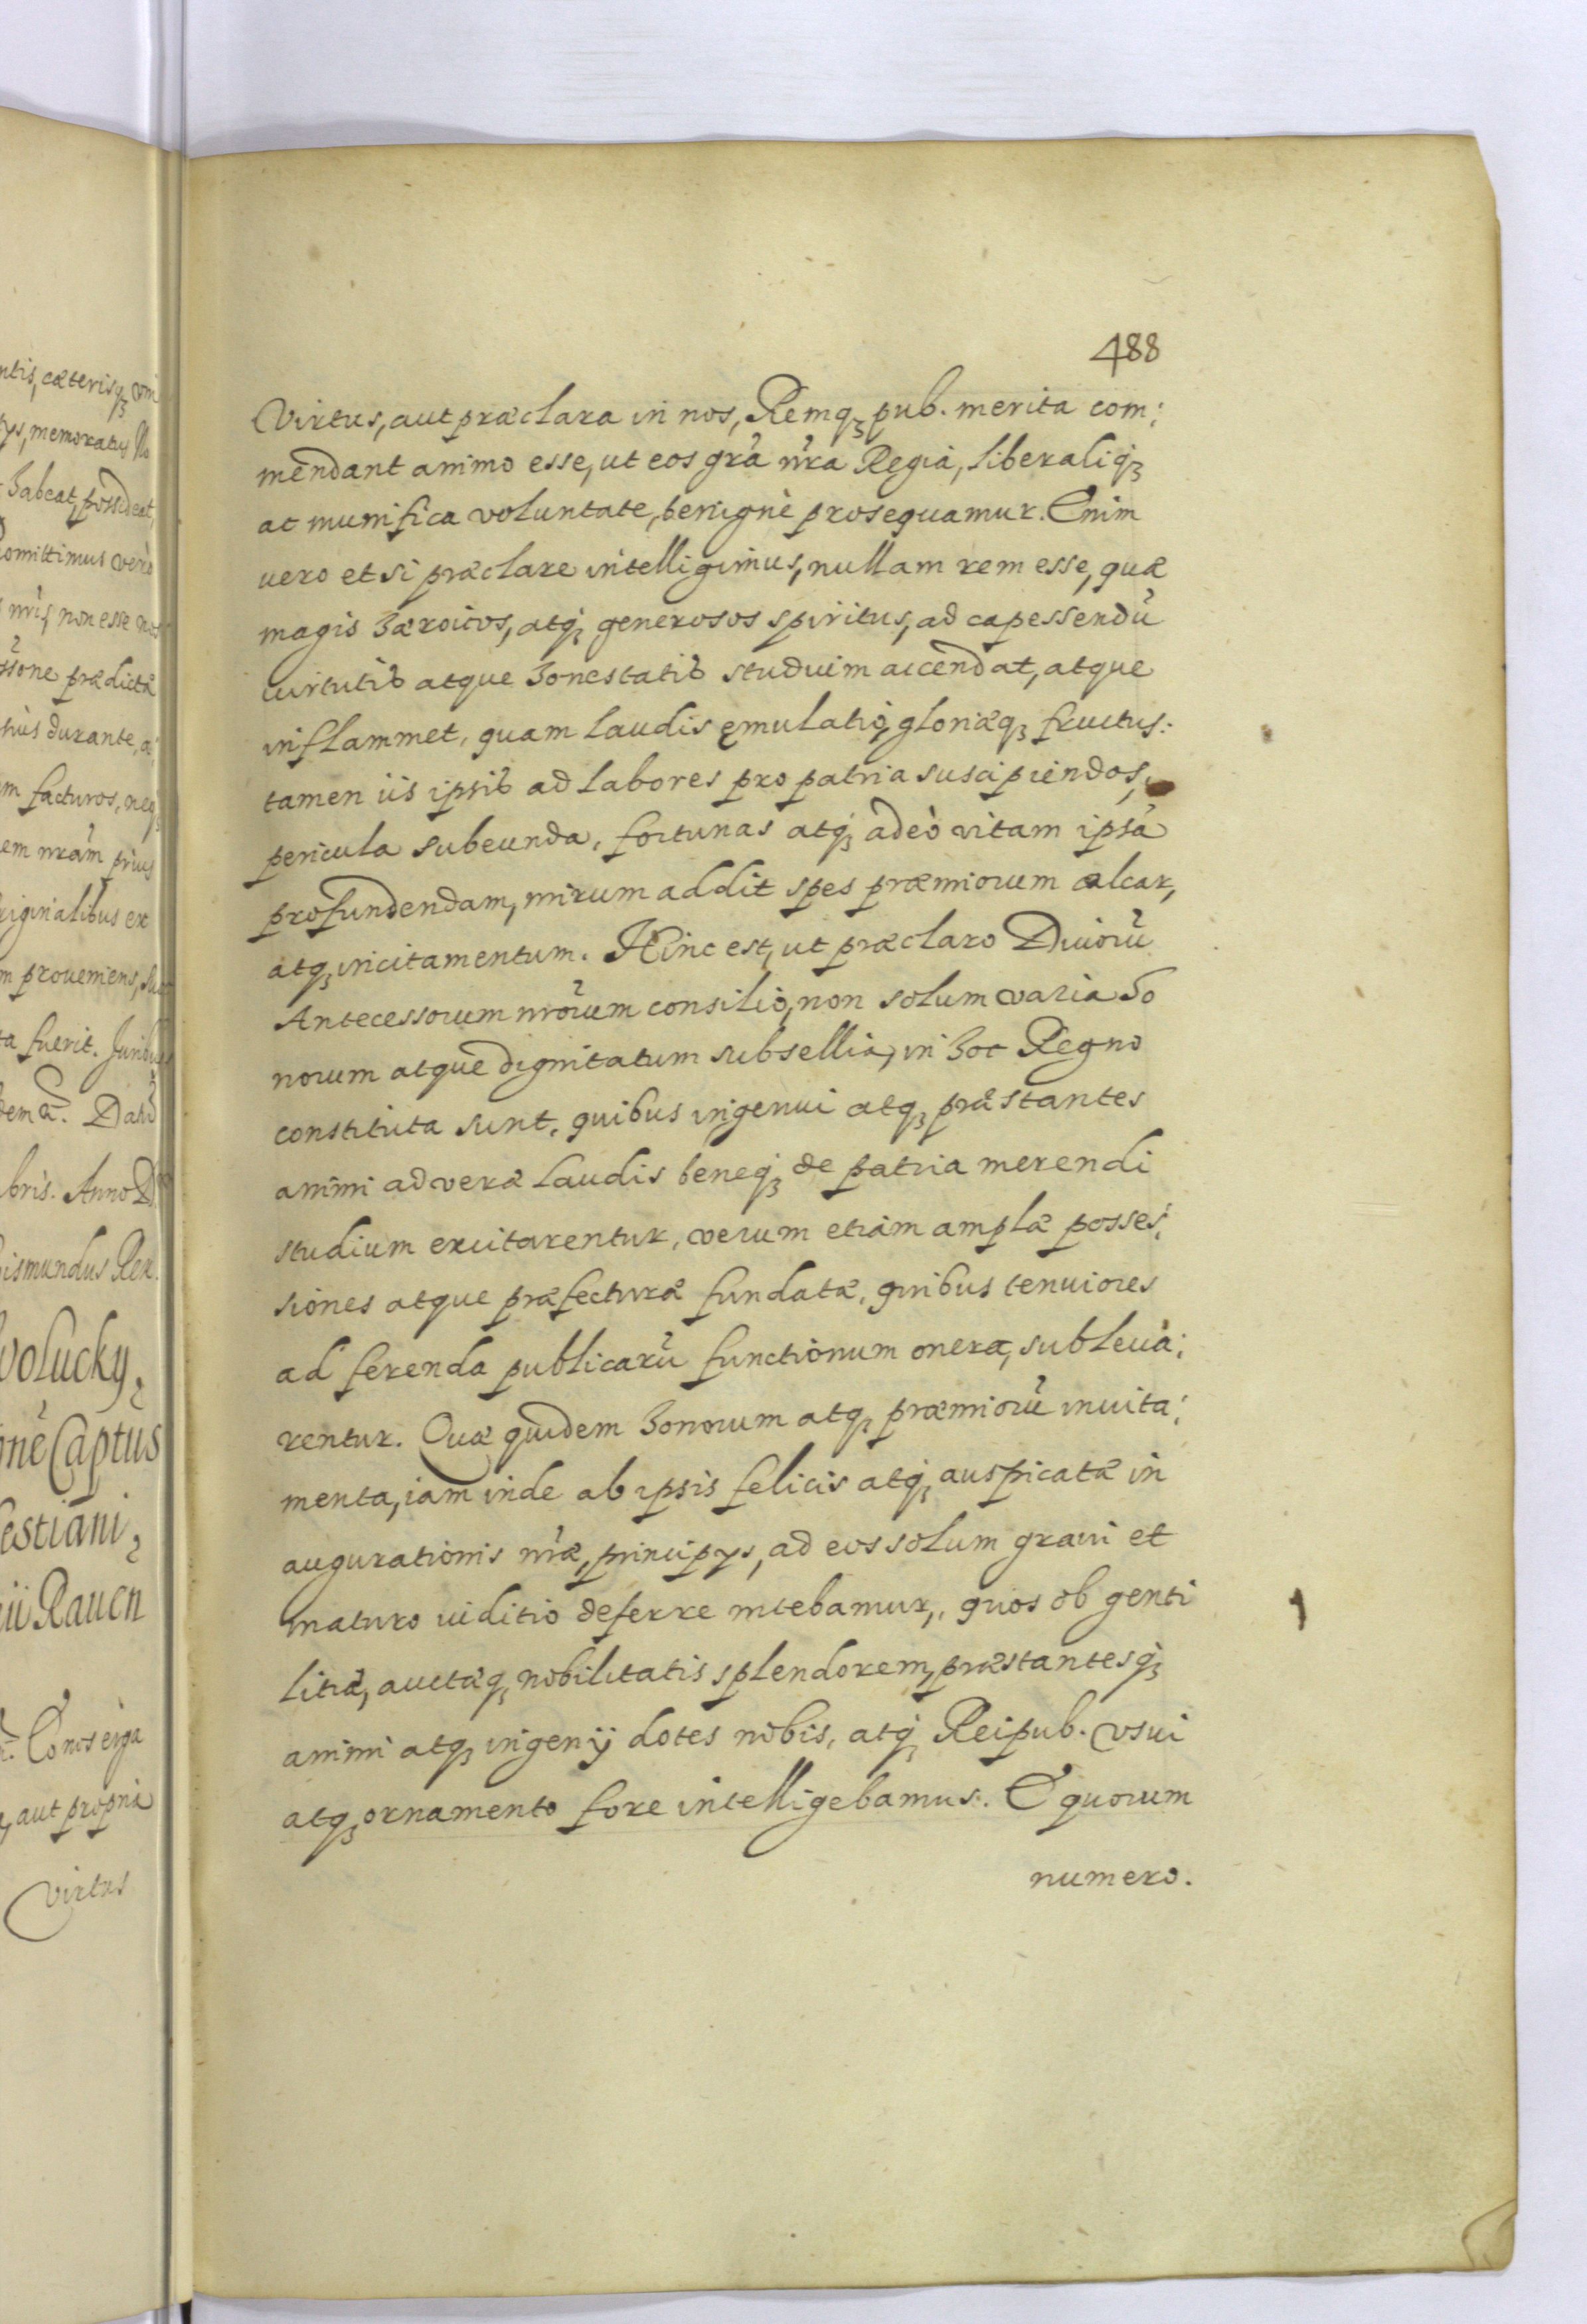 ntis, cæterisq₃
memoratus
habeat, possideat,
omittimus vero
nris non esse nos
ssione prædicta
durante,
m facturos, neq₃
em nram prius
riginalibus ex
m proueniens,
ta fuerit. Juribus
Datũ
bris. Anno D
ismundus Rex.
wolucky,
Captus
estiani,
Rauen
Co nos erga
aut propria
virtus
488
Virtus, aut præclara in nos, Remq₃ pub. merita com:
mendant animo esse, ut eos gra nra Regia, liberaliq₃
ac munifica voluntate, benignè prosequamur. Enim
uero etsi præclare intelligimus, nullam rem esse, quæ
magis hæroicos, atq₃ generosos spiritus, ad capessendũ
uirtutis atque honestatis studium accendat, atque
inflammet, quam laudis ęmulatio, gloriæq₃ fructus:
tamen iis ipsis ad labores pro patria suscipiendos,
pericula subeunda, fortunas atq₃ adeò vitam ipsã
profundendam, mirum addit spes præmiorum calcar,
atq₃ incitamentum. Hinc est, ut præclaro Diuiorũ
Antecessorum nrorum consilio, non solum varia ho
norum atque dignitatum subsellia, in hoc Regno
constituta sunt, quibus ingenui atq₃ præstantes
animi ad veræ laudis beneq₃ de patria merendi
studium excitarentur, verum etiam amplæ posses:
siones atque præfecturæ fundatæ, quibus tenuiores
ad ferenda publicarũ functionum onera, subleua:
rentur. Quæ quidem honorum atq₃ præmiorũ inuita:
menta, iam inde ab ipsis felicis atq₃ auspicatæ in
augurationis nræ, principys, ad eos solum graui et
maturo iuditio deferre nitebamur, quos ob genti
litiæ, auctæq₃ nobilitatis splendorem, præstantesq₃
animi atq₃ ingenij dotes nobis, atq₃ Reipub. vsui
atq₃ ornamento fore intelligebamus. E quorum
numero.